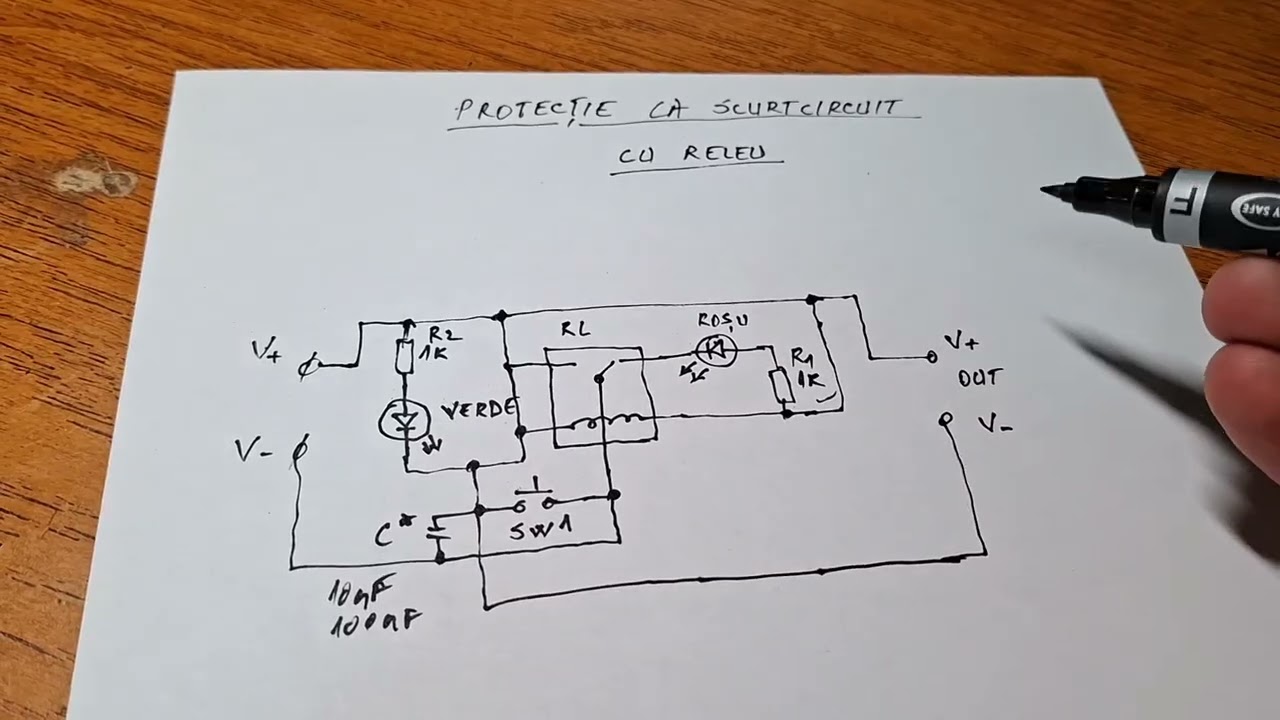 PROTECȚIE LA SCURTCIRCUIT
CU RELEU
RL
ROȘU
R2
1K
V+
V+
OUT
R1
1K
VERDE
V-
V-
C*
SW1
10nF
100nF